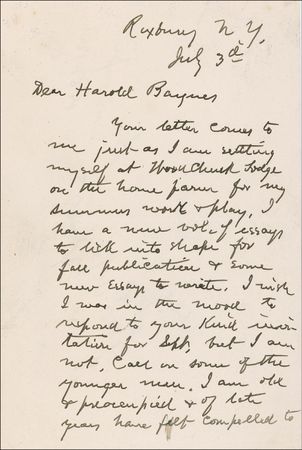 Roxbury N Y,
July 3d
Dear Harold Baynes
Your letter comes to
me just as I am settling
myself at Woodchuck Lodge
on the home farm for my
summers work & play. I
have a new vol. of essays
to lick into shape for
fall publication & some
new Essays to write. I wish
I was in the mood to
respond to your Kind invi
tation for Sept, but I am
not. Call on some of the
younger men. I am old
& preocupied & of late
years have felt compelled to